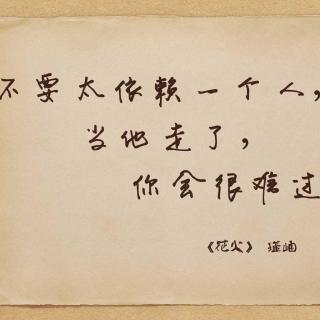 不要太依赖一个人，
当他走了，
你会很难过
《花火》